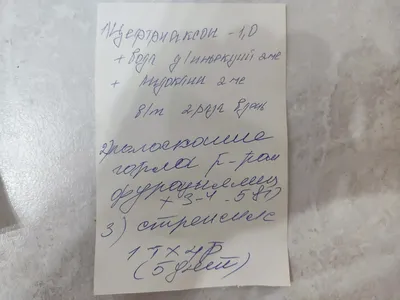 1) Цефтриаксон - 1,0
+ вода д/инъекций 2 мл
+ лидокаин 2 мл
в/м 2 раза в день
2) полоскание
горла р-ром
фурацилина
3) стрепсилс
1т х 4р
(5 дней)